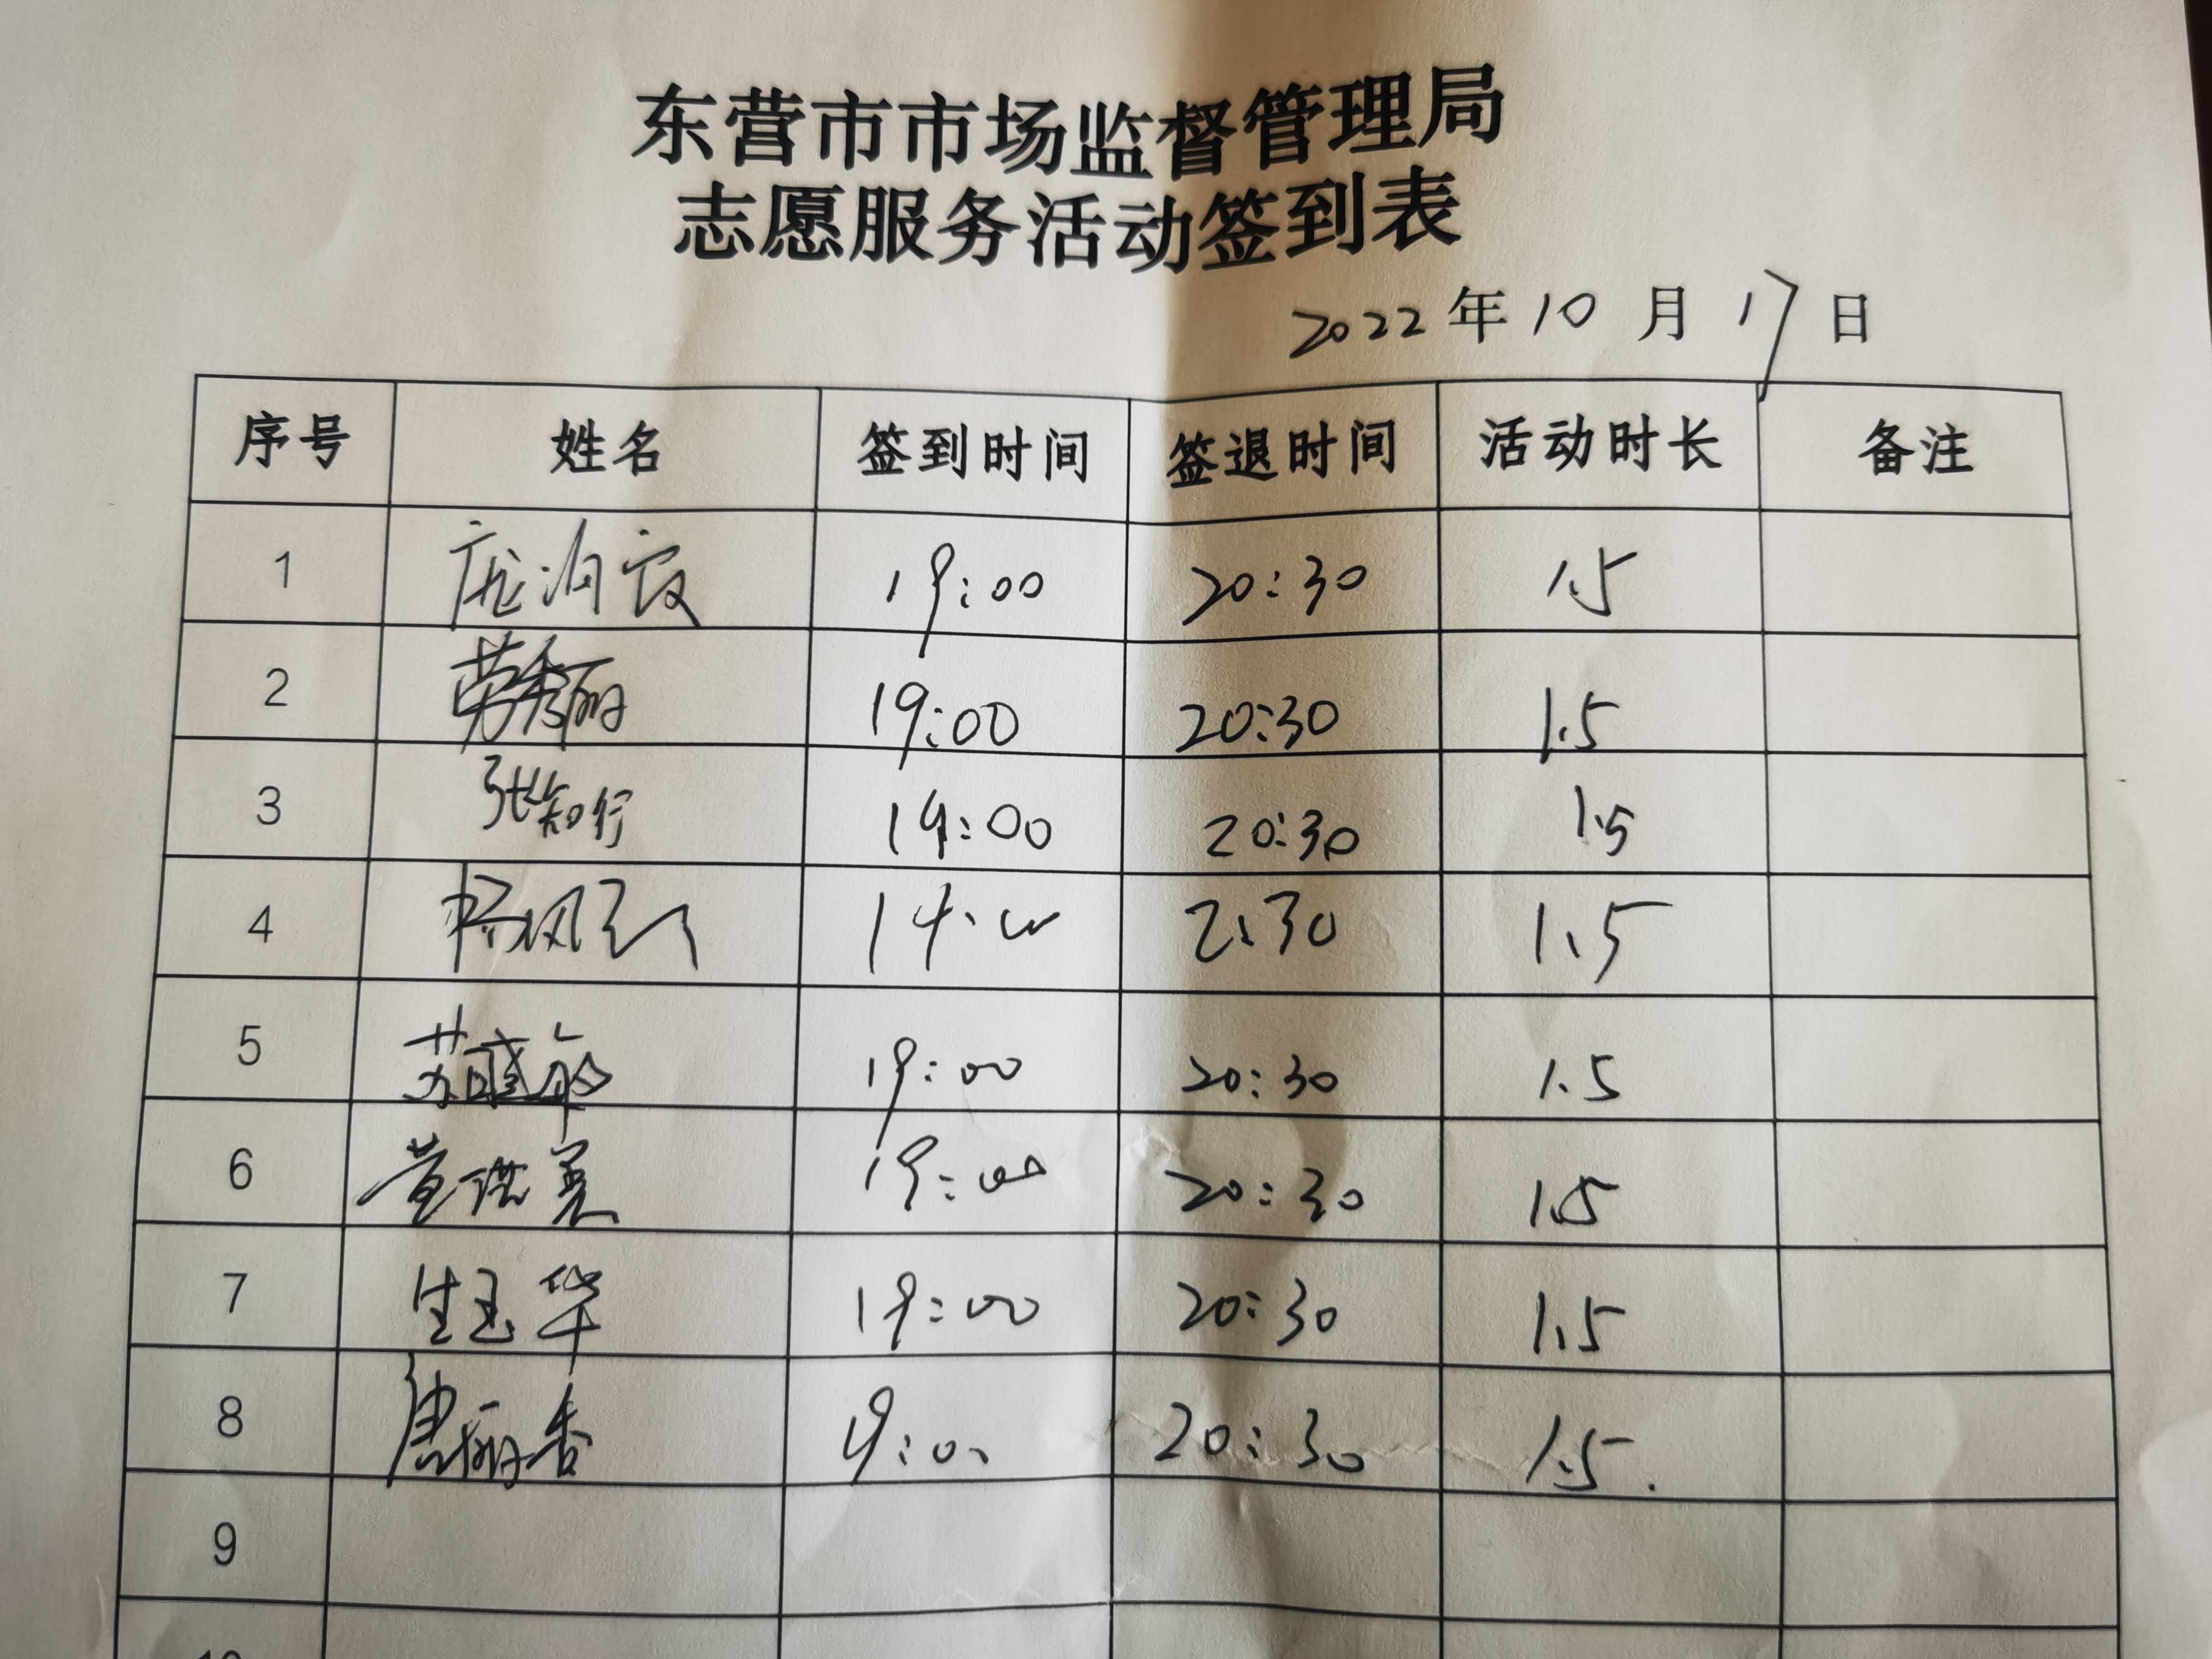 东营市市场监督管理局
志愿服务活动签到表
2022年10月17日
序号 姓名 签到时间 签退时间 活动时长 备注
1 19:00 20:30 1.5
2 劳秀丽 19:00 20:30 1.5
3 张知行 19:00 20:30 1.5
4 2:30 1.5
5 苏盛敏 19:00 20:30 1.5
6 19:00 20:30 1.5
7 生玉华 19:00 20:30 1.5
8 唐丽香 20:30 1.5.
9
10